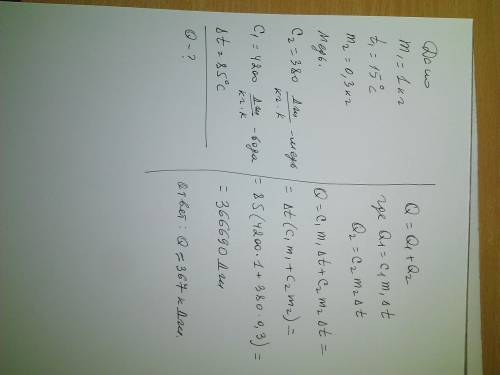 Дано
m₁ = 1 кг
t₁ = 15°C
m₂ = 0,3 кг
медь.
C₂ = 380 Дж/кг·К - медь
C₁ = 4200 Дж/кг·К - вода
Δt = 85°C
Q - ?
Q = Q₁ + Q₂
где Q₁ = C₁m₁Δt
Q₂ = C₂m₂Δt
Q = C₁m₁Δt + C₂m₂Δt =
= Δt(C₁m₁ + C₂m₂) =
= 85(4200·1 + 380·0,3) =
= 366690 Дж
Ответ: Q = 367 кДж.